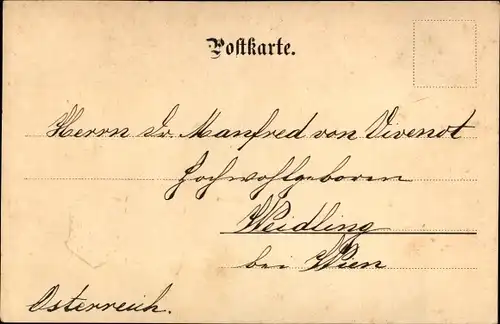 Postkarte.
Herrn Dr. Manfred von Vivenot
Hochwohlgeboren
Weidling
bei Wien
Österreich.